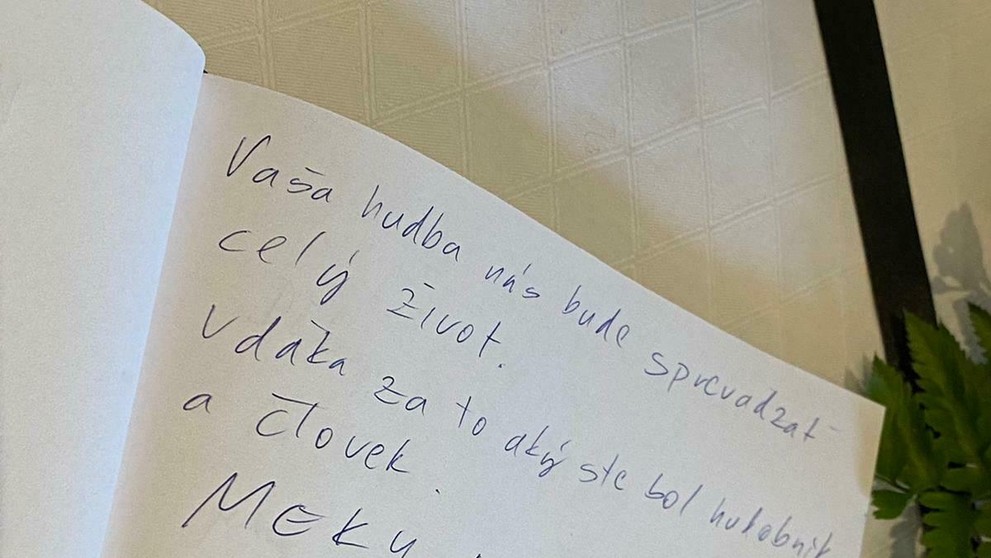 Vaša hudba nás bude sprevádzať
celý život.
Vďaka za to aký ste bol hudobník
a človek.
MEKY